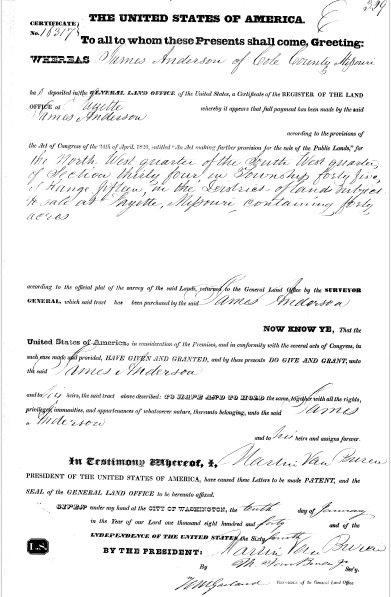 THE UNITED STATES OF AMERICA.
CERTIFICATE
No. 16317
To all to whom these Presents shall come, Greeting:
WHEREAS James Anderson of Cole County Missouri
ha deposited in the GENERAL LAND OFFICE of the United States, a Certificate of the REGISTER OF THE LAND
OFFICE at Fayette whereby it appears that full payment has been made by the said
James Anderson
according to the provisions of
the Act of Congress of the 24th of April, 1820, entitled "An Act making further provision for the sale of the Public Lands," for
the North West quarter of the South West quarter,
of Section thirty four, in Township forty five,
of Range fifteen, in the District of lands subject
to sale at Fayette, Missouri, containing forty
acres
according to the official plat of the survey of the said Lands, returned to the General Land Office by the SURVEYOR
GENERAL, which said tract has been purchased by the said James Anderson
NOW KNOW YE, That the
United States of America, in consideration of the Premises, and in conformity with the several acts of Congress, in
such case made and provided, HAVE GIVEN AND GRANTED, and by these presents DO GIVE AND GRANT, unto
the said James Anderson
and to his heirs, the said tract above described: TO HAVE AND TO HOLD the same, together with all the rights,
privileges, immunities, and appurtenances of whatsoever nature, thereunto belonging, unto the said James
Anderson
and to his heirs and assigns forever.
In Testimony Whereof, I, Martin Van Buren
PRESIDENT OF THE UNITED STATES OF AMERICA, have caused these Letters to be made PATENT, and the
SEAL of the GENERAL LAND OFFICE to be hereunto affixed.
GIVEN under my hand at the CITY OF WASHINGTON, the tenth day of January
in the Year of our Lord one thousand eight hundred and forty and of the
INDEPENDENCE OF THE UNITED STATES the Sixty fourth
L.S.
BY THE PRESIDENT: Martin Van Buren
By M. Van Buren Jr. Sec'y.
Recorder of the General Land Office